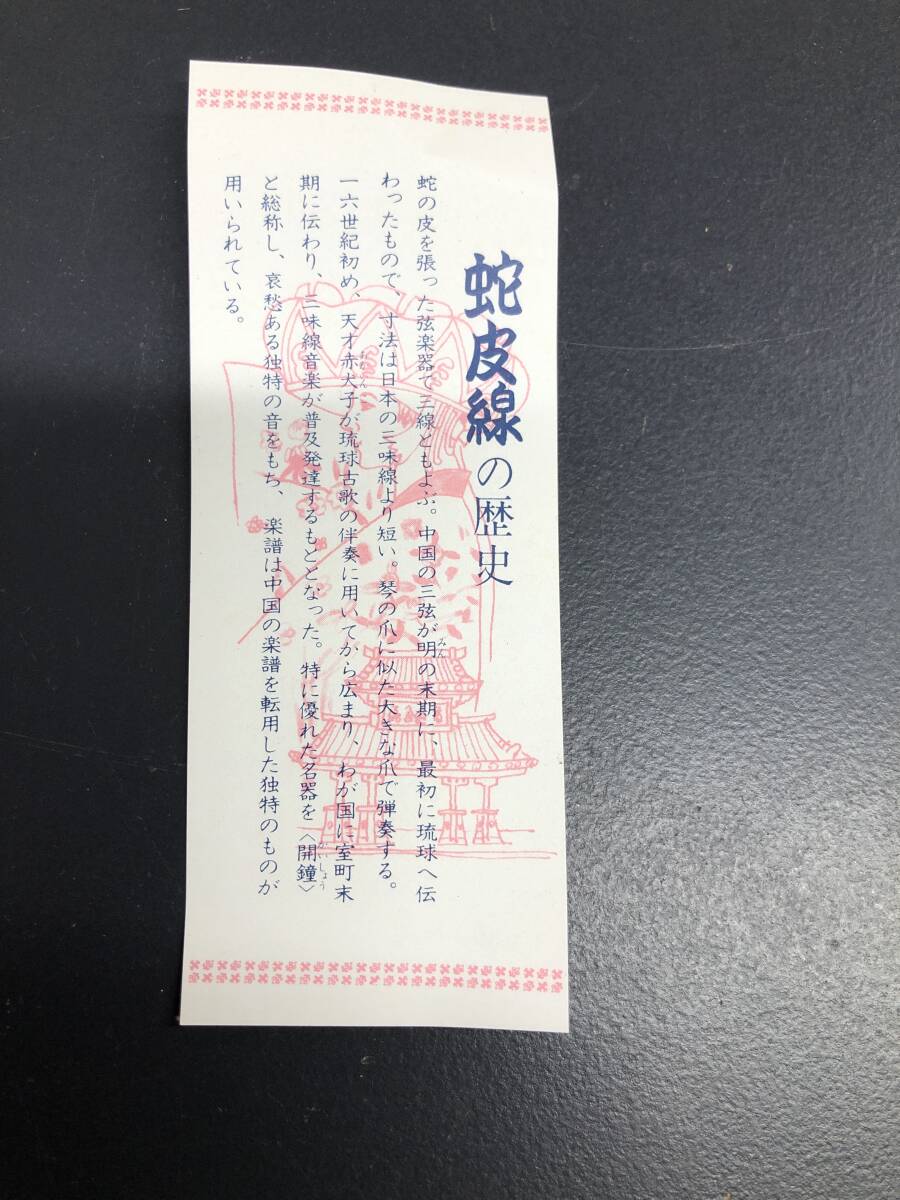 蛇皮線の歴史
蛇の皮を張った弦楽器で三線ともよぶ。中国の三弦が明の末期に、最初に琉球へ伝
わったもので、寸法は日本の三味線より短い。琴の爪に似た大きな爪で弾奏する。
一六世紀初め、天才赤犬子が琉球古歌の伴奏に用いてから広まり、わが国に室町末
期に伝わり、三味線音楽が普及発達するもととなった。特に優れた名器を〈開鐘〉
と総称し、哀愁ある独特の音をもち、楽譜は中国の楽譜を転用した独特のものが
用いられている。
みん
かいしょう